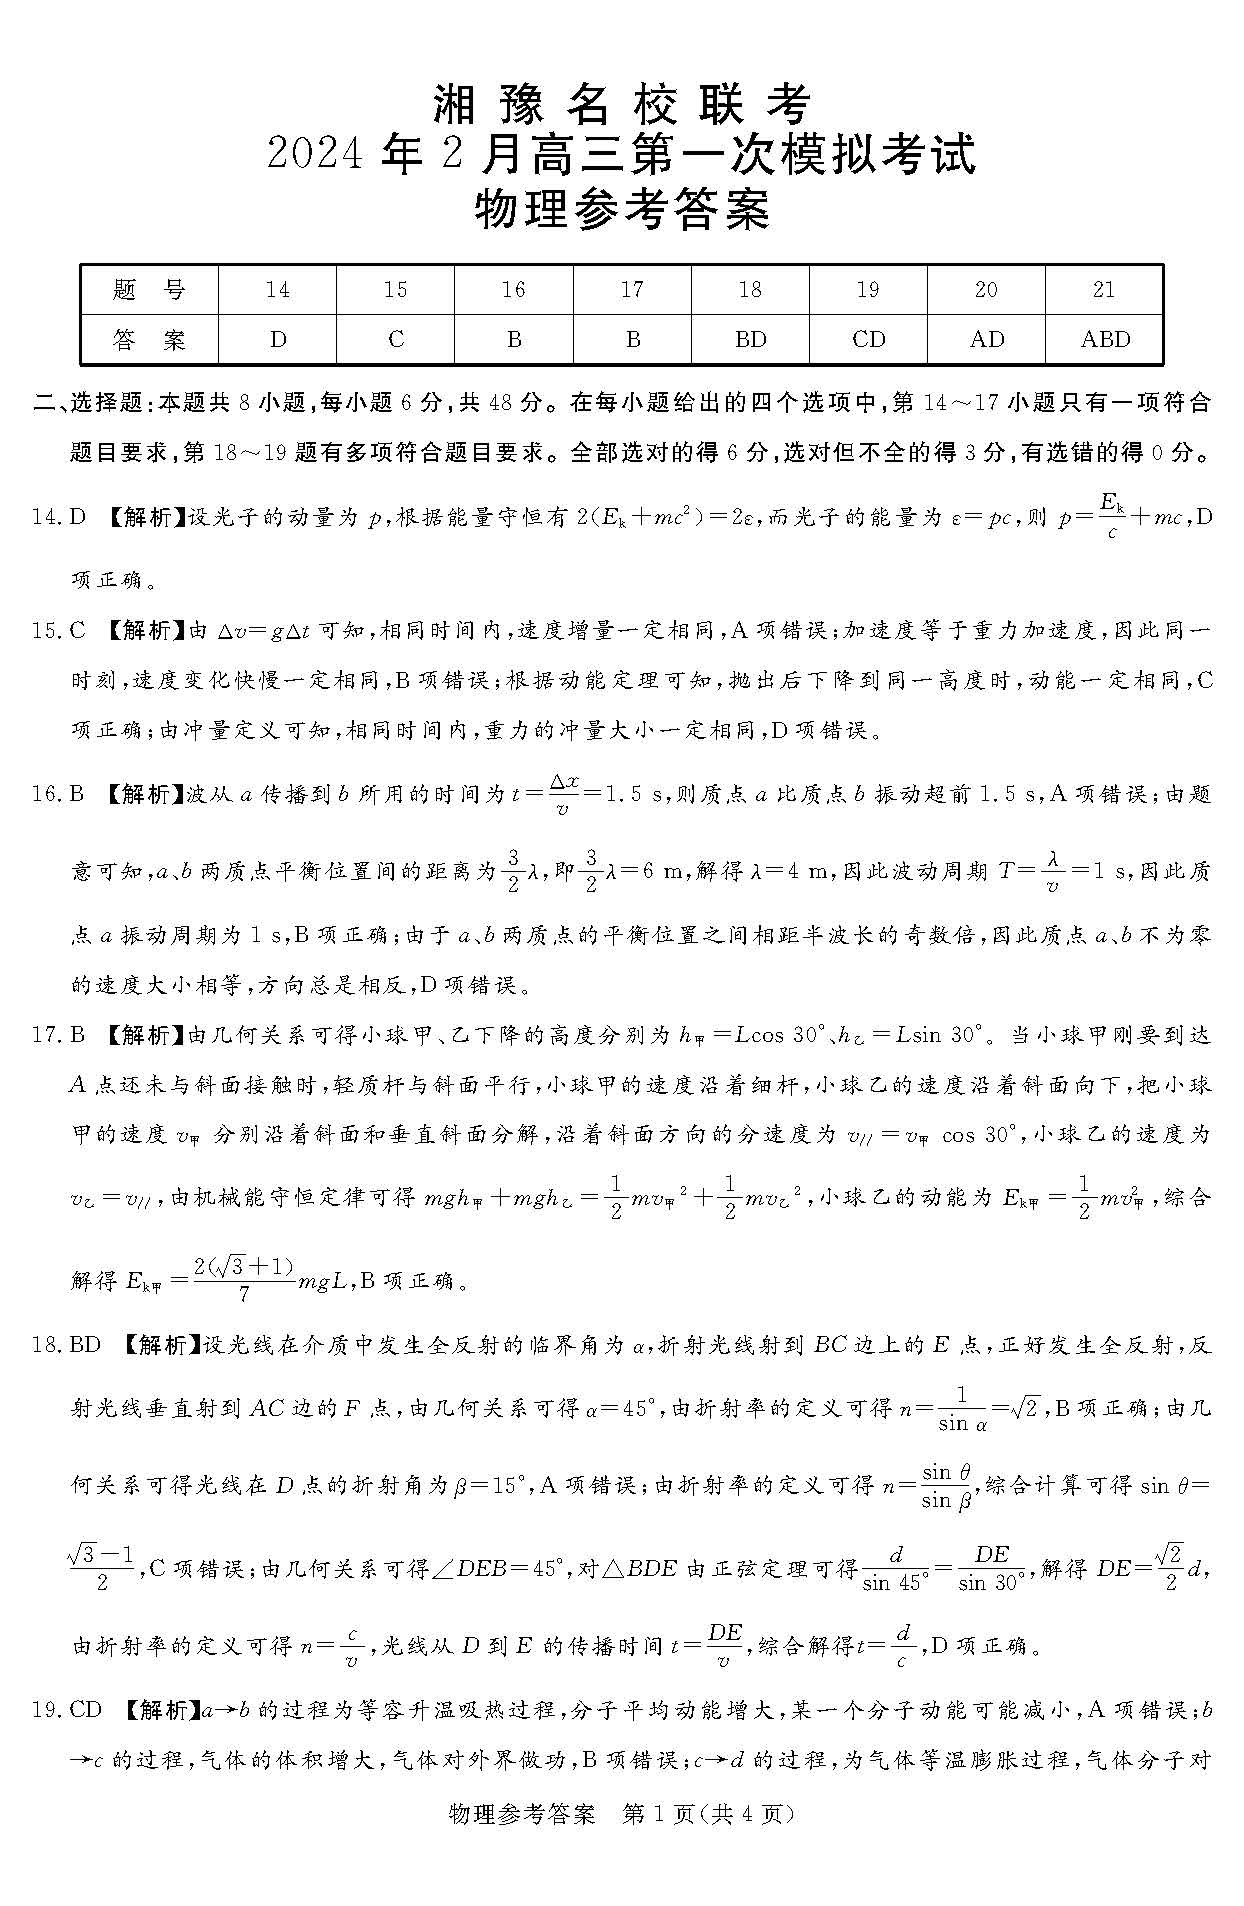 湘豫名校联考
2024年2月高三第一次模拟考试
物理参考答案
题 号 14 15 16 17 18 19 20 21
答 案 D C B B BD CD AD ABD
二、选择题:本题共8小题,每小题6分,共48分。在每小题给出的四个选项中,第14～17小题只有一项符合
题目要求,第18～19题有多项符合题目要求。全部选对的得6分,选对但不全的得3分,有选错的得0分。
14. D 【解析】设光子的动量为 p,根据能量守恒有 2(E_k+mc²)=2ε,而光子的能量为 ε=pc,则 p=E_k/c+mc,D
项正确。
15. C 【解析】由 Δv=gΔt 可知,相同时间内,速度增量一定相同,A项错误;加速度等于重力加速度,因此同一
时刻,速度变化快慢一定相同,B项错误;根据动能定理可知,抛出后下降到同一高度时,动能一定相同,C
项正确;由冲量定义可知,相同时间内,重力的冲量大小一定相同,D项错误。
16. B 【解析】波从 a 传播到 b 所用的时间为 t=Δx/v=1.5 s,则质点 a 比质点 b 振动超前 1.5 s,A项错误;由题
意可知,a、b 两质点平衡位置间的距离为 3/2 λ,即 3/2 λ=6 m,解得 λ=4 m,因此波动周期 T=λ/v=1 s,因此质
点 a 振动周期为 1 s,B项正确;由于 a、b 两质点的平衡位置之间相距半波长的奇数倍,因此质点 a、b 不为零
的速度大小相等,方向总是相反,D项错误。
17. B 【解析】由几何关系可得小球甲、乙下降的高度分别为 h甲=Lcos 30°、h乙=Lsin 30°。当小球甲刚要到达
A 点还未与斜面接触时,轻质杆与斜面平行,小球甲的速度沿着细杆,小球乙的速度沿着斜面向下,把小球
甲的速度 v甲 分别沿着斜面和垂直斜面分解,沿着斜面方向的分速度为 v//=v甲 cos 30°,小球乙的速度为
v乙=v//,由机械能守恒定律可得 mgh甲+mgh乙=1/2 mv甲²+1/2 mv乙²,小球乙的动能为 E_k甲=1/2 mv甲²,综合
解得 E_k甲=2(√3+1)/7 mgL,B项正确。
18. BD 【解析】设光线在介质中发生全反射的临界角为 α,折射光线射到 BC 边上的 E 点,正好发生全反射,反
射光线垂直射到 AC 边的 F 点,由几何关系可得 α=45°,由折射率的定义可得 n=1/sin α=√2,B项正确;由几
何关系可得光线在 D 点的折射角为 β=15°,A项错误;由折射率的定义可得 n=sin θ/sin β,综合计算可得 sin θ=
(√3-1)/2,C项错误;由几何关系可得∠DEB=45°,对△BDE 由正弦定理可得 d/sin 45°=DE/sin 30°,解得 DE=√2/2 d,
由折射率的定义可得 n=c/v,光线从 D 到 E 的传播时间 t=DE/v,综合解得t=d/c,D项正确。
19. CD 【解析】a→b 的过程为等容升温吸热过程,分子平均动能增大,某一个分子动能可能减小,A项错误;b
→c 的过程,气体的体积增大,气体对外界做功,B项错误;c→d 的过程,为气体等温膨胀过程,气体分子对
物理参考答案 第1页(共4页)